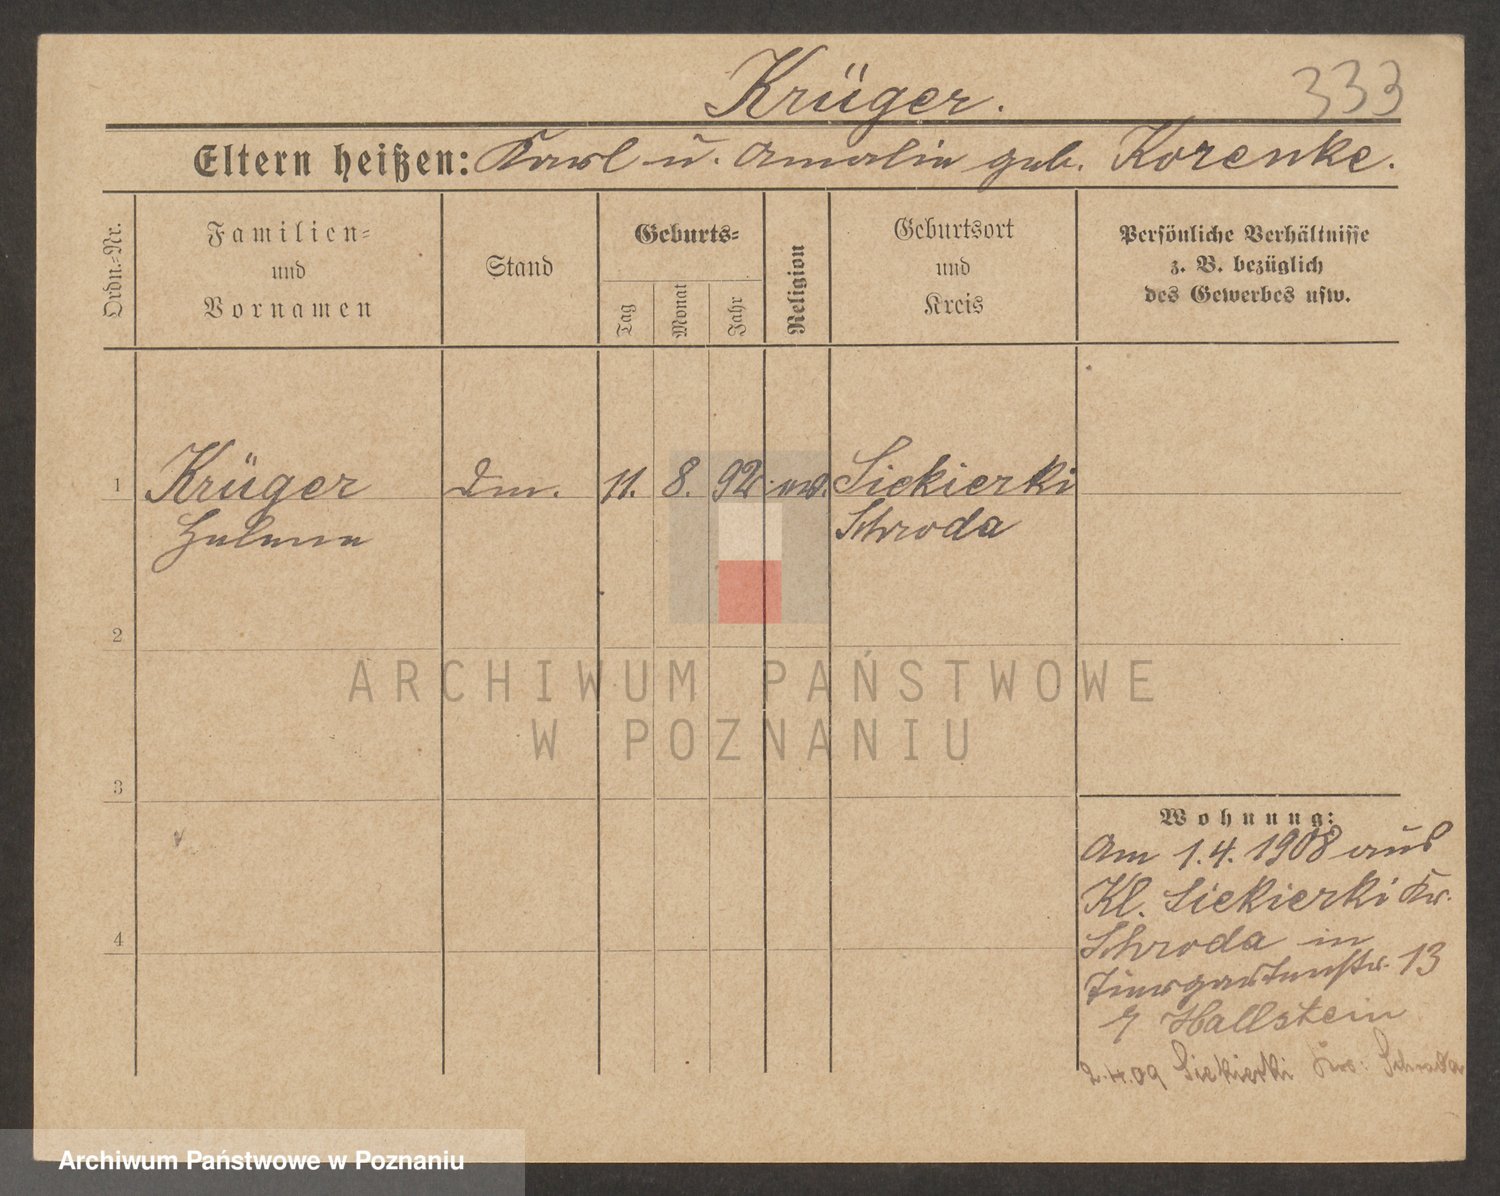 Krüger.
333
Eltern heißen: Karl u. Amalie geb. Korenke.
Ordn.-Nr.
Familien-
und
Vornamen
Stand
Geburts-
Tag
Monat
Jahr
Religion
Geburtsort
und
Kreis
Persönliche Verhältnisse
z. B. bezüglich
des Gewerbes usw.
1 Krüger 11. 8. 92 ev. Siekierki
Helene Schroda
2
3
4
ARCHIWUM PAŃSTWOWE
W POZNANIU
Wohnung:
Am 1.4.1908 aus
Kl. Siekierki Kr.
Schroda in
Tiergartenstr. 13
Hallstein
2.4.09 Siekierki Krs: Schroda
Archiwum Państwowe w Poznaniu